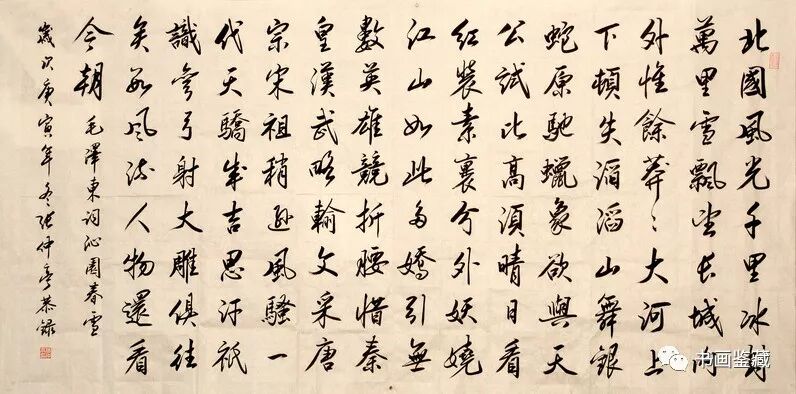 北國風光千里冰封
萬里雪飄望長城内
外惟餘莽〻大河上
下頓失滔滔山舞銀
蛇原馳蠟象欲與天
公試比高須晴日看
紅裝素裹分外妖嬈
江山如此多嬌引無
數英雄競折腰惜秦
皇漢武略輸文采唐
宗宋祖稍遜風騷一
代天驕成吉思汗祇
識彎弓射大雕俱往
矣數風流人物還看
今朝 毛澤東詞沁園春雪
歲次庚寅年冬張仲亭恭錄
书画鉴藏